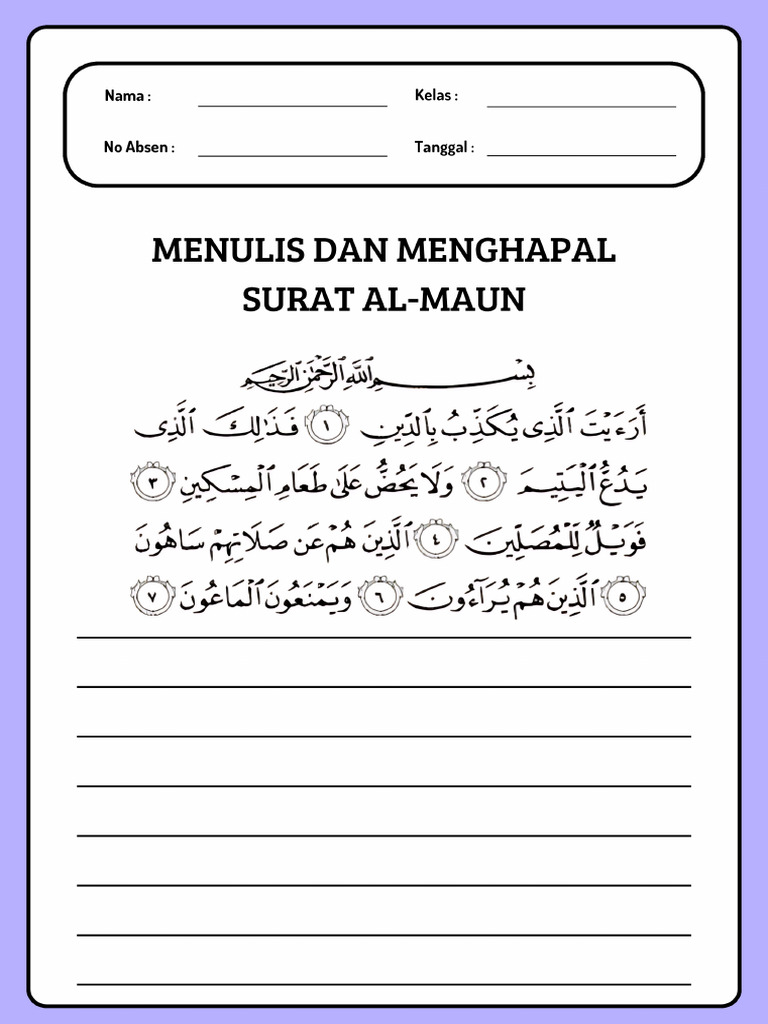 Nama : Kelas :
No Absen : Tanggal :
MENULIS DAN MENGHAPAL
SURAT AL-MAUN
بِسْمِ اللَّهِ الرَّحْمَٰنِ الرَّحِيمِ
أَرَءَيْتَ ٱلَّذِى يُكَذِّبُ بِٱلدِّينِ ١ فَذَٰلِكَ ٱلَّذِى
يَدُعُّ ٱلْيَتِيمَ ٢ وَلَا يَحُضُّ عَلَىٰ طَعَامِ ٱلْمِسْكِينِ ٣
فَوَيْلٌ لِّلْمُصَلِّينَ ٤ ٱلَّذِينَ هُمْ عَن صَلَاتِهِمْ سَاهُونَ
٥ ٱلَّذِينَ هُمْ يُرَآءُونَ ٦ وَيَمْنَعُونَ ٱلْمَاعُونَ ٧